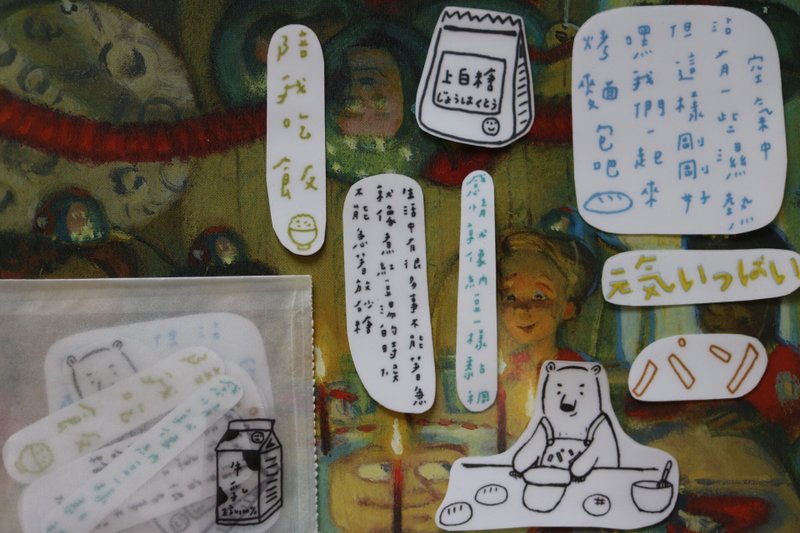 陪我吃飯
上白糖
じょうはくとう
空氣中
沾有一些濕熱
但這樣剛剛好
嘿我們一起來
烤麵包吧
生活中有很多事不能著急
就像煮紅豆湯的時候
不能急著放砂糖
元気いっぱい
パン
牛乳